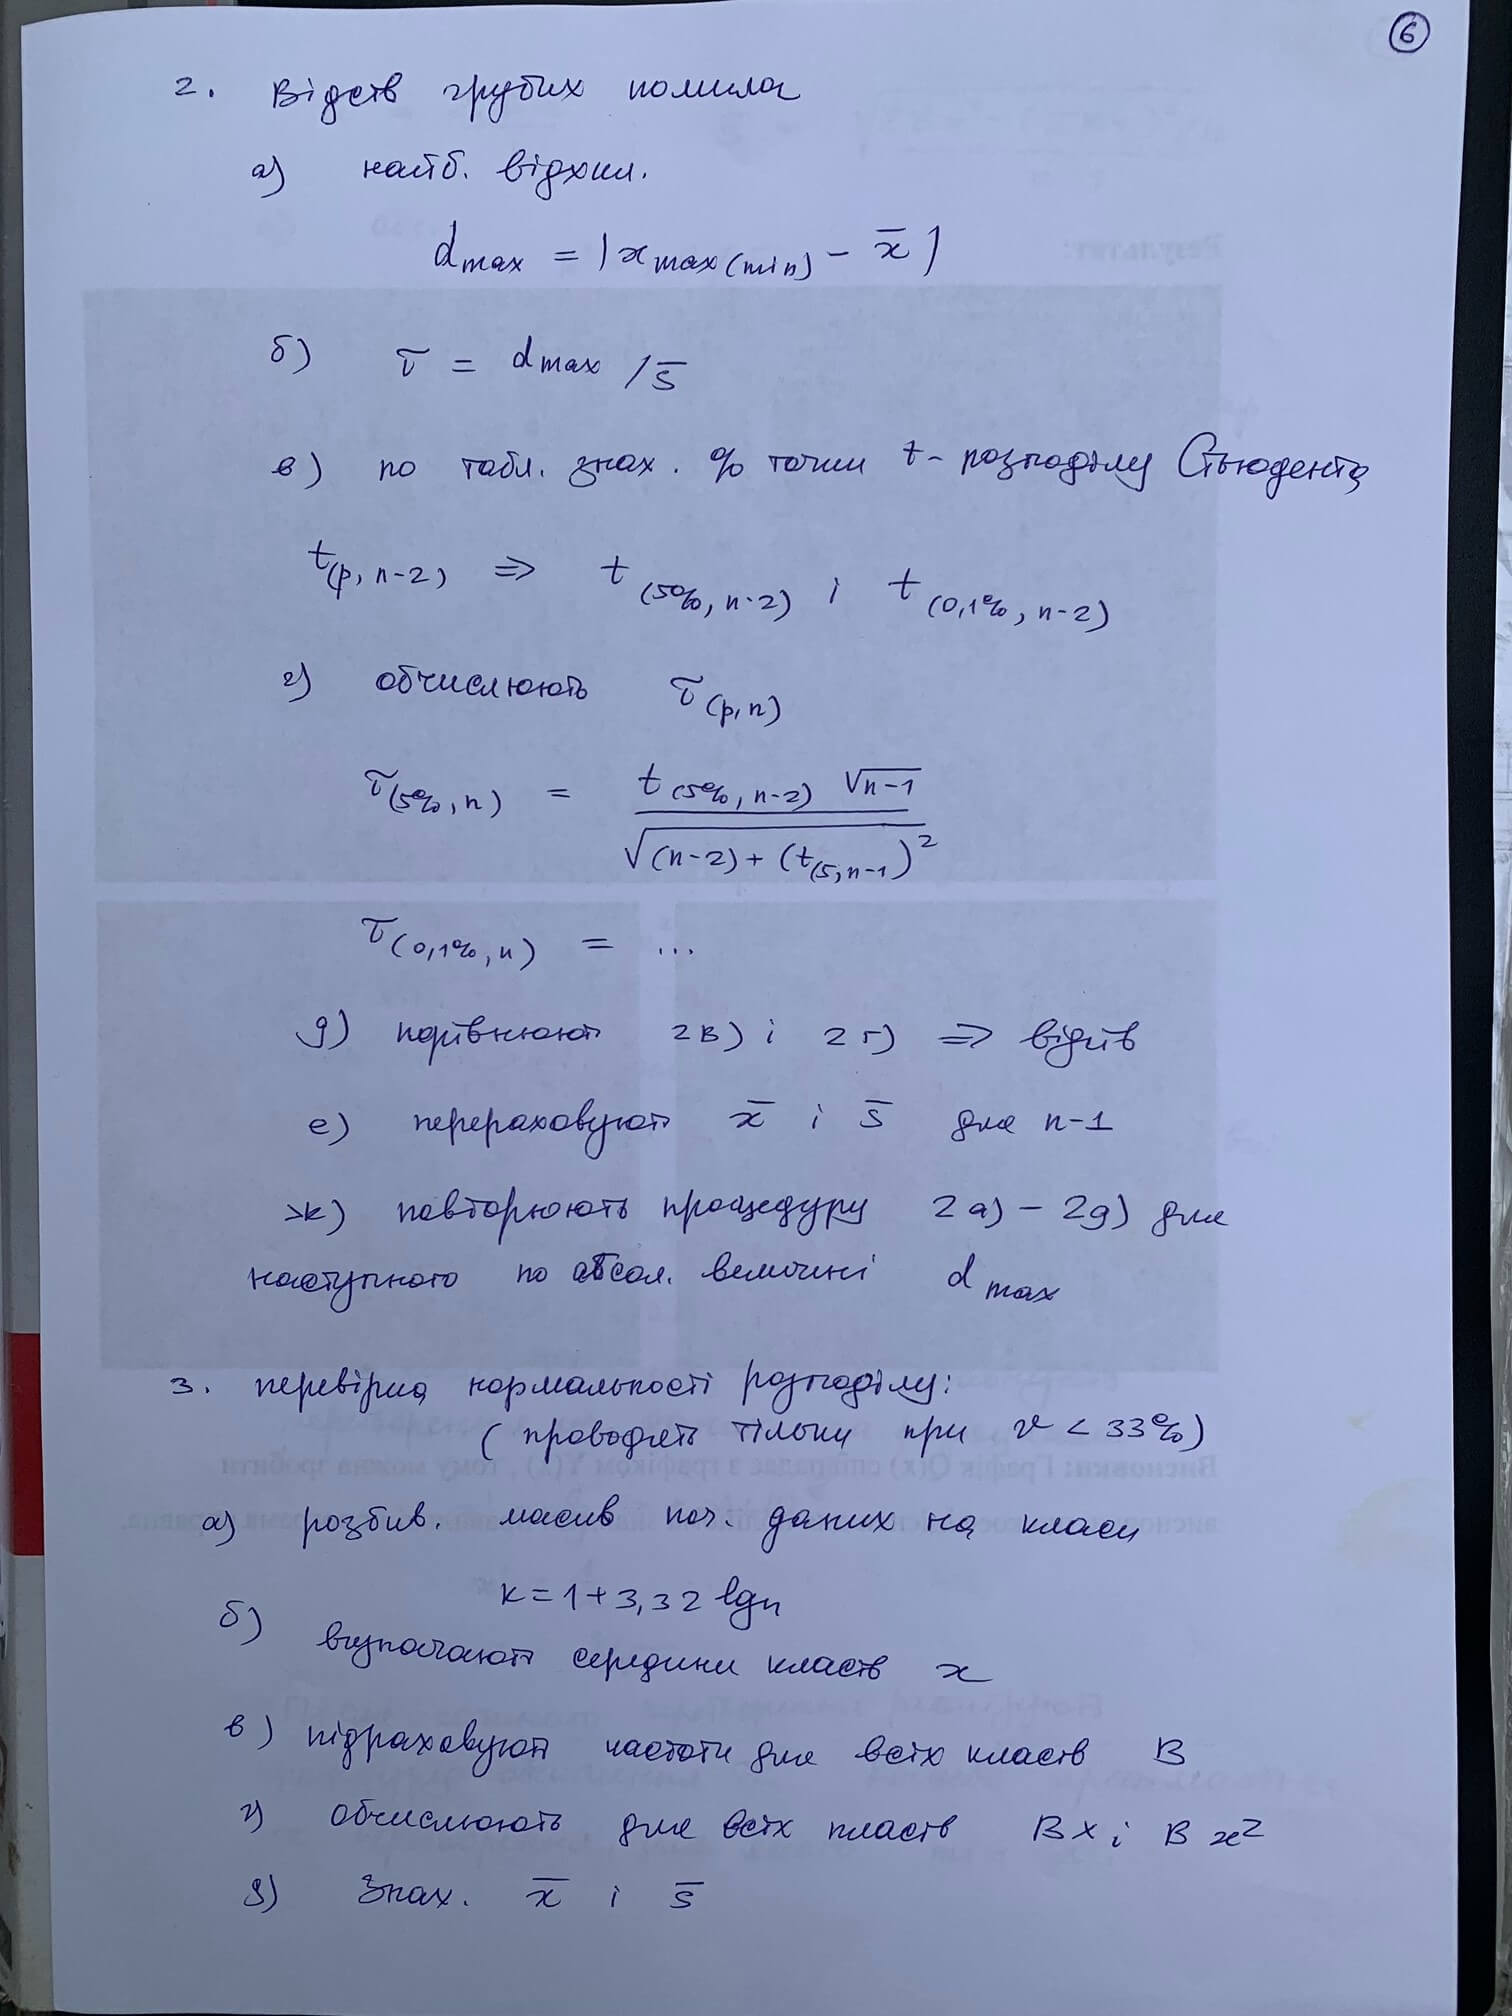 6
2. Відсів грубих помилок
а) найб. відхил.
d max = | x max (min) - x̄ |
б) τ = d max / s̄
в) по табл. знах. % точки t - розподілу Стьюдента
t(p, n-2) ⇒ t (5%, n-2) і t (0,1%, n-2)
г) обчислюють τ (p, n)
τ(5%, n) = t (5%, n-2) √n-1 / √(n-2) + (t(5, n-1))²
τ (0,1%, n) = ...
д) порівнюють 2в) і 2г) ⇒ відсів
е) перераховують x̄ і s̄ для n-1
ж) повторюють процедуру 2а) - 2д) для
наступного по абсол. величині d max
3. перевірка нормальності розподілу:
( проводять тільки при v < 33%)
а) розбив. масив поч. даних на класи
k = 1 + 3,32 lgn
б) визначають середини класів x
в) підраховують частоти для всіх класів B
г) обчислюють для всіх класів Bx і Bx²
д) Знах. x̄ і s̄